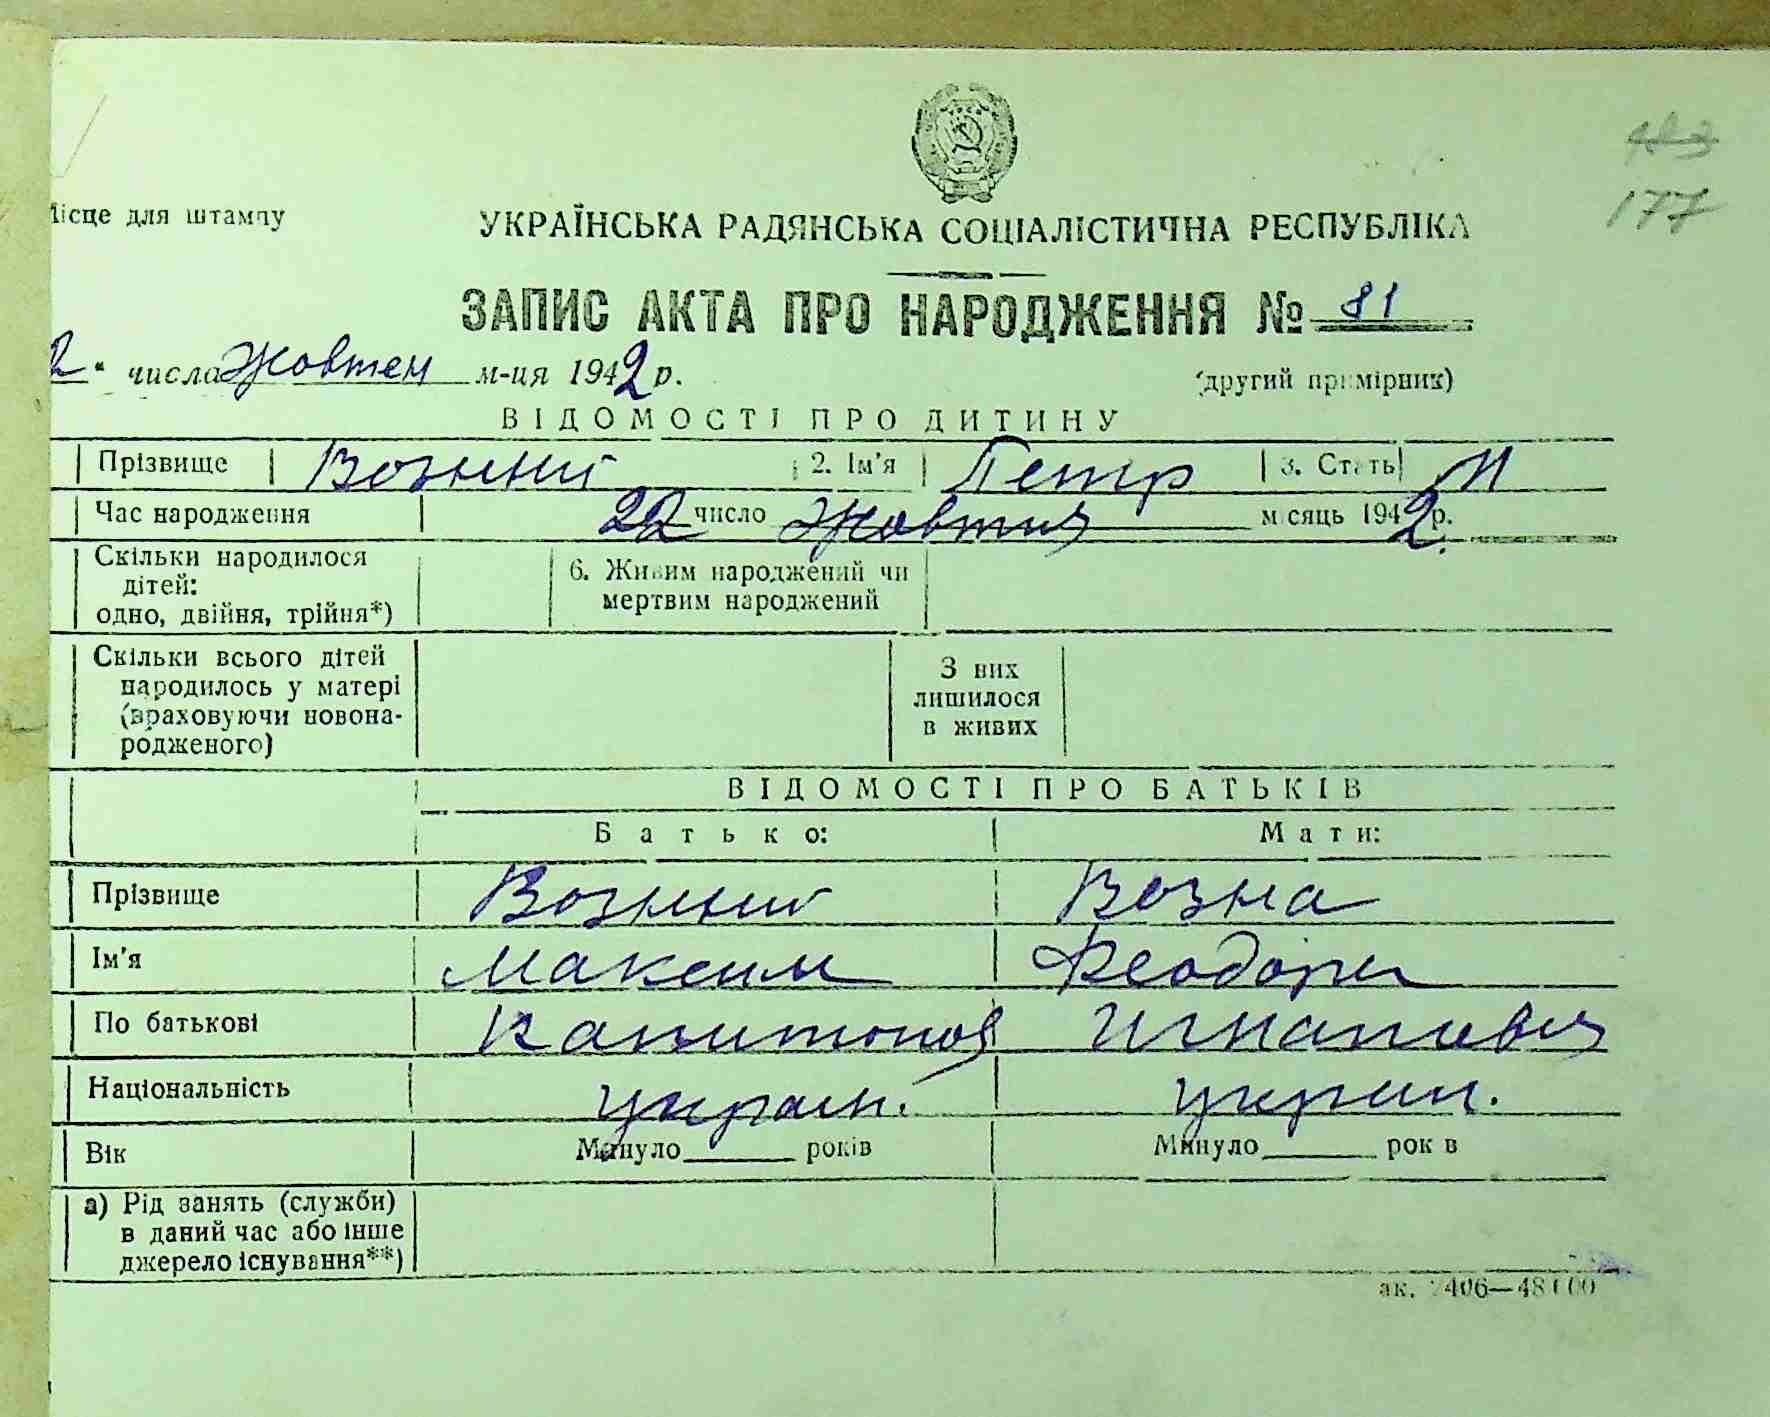 177
Місце для штампу
УКРАЇНСЬКА РАДЯНСЬКА СОЦІАЛІСТИЧНА РЕСПУБЛІКА
ЗАПИС АКТА ПРО НАРОДЖЕННЯ № 81
2" числа Жовтен м-ця 1942 р.
(другий примірник)
ВІДОМОСТІ ПРО ДИТИНУ
Прізвище Возний 2. Ім'я Петр 3. Стать М
Час народження 22 число Жовтня місяць 1942 р.
Скільки народилося дітей: одно, двійня, трійня*)
6. Живим народжений чи мертвим народжений
Скільки всього дітей народилось у матері (враховуючи новона-родженого)
З них лишилося в живих
ВІДОМОСТІ ПРО БАТЬКІВ
Батько: Мати:
Прізвище Возний Возна
Ім'я Максим Феодора
По батькові Капитонов Игнатівна
Національність украін. украін.
Вік Минуло років Минуло років
а) Рід занять (служби) в даний час або інше джерело існування**)